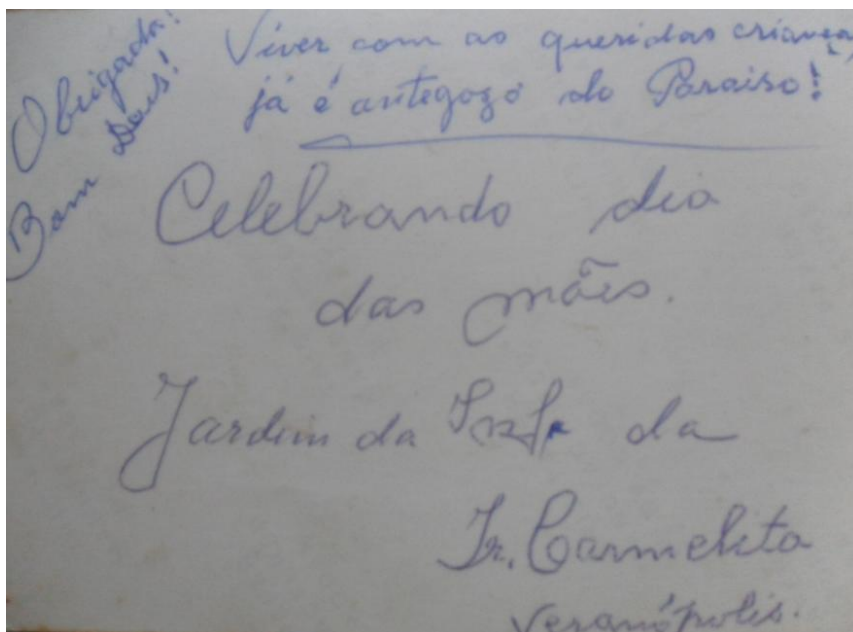 Obrigada!
Bom Deus!
Viver com as queridas crianças,
já é antegozo do Paraiso!
Celebrando dia
das mães.
Jardim da Inf. da
Ir. Carmelita
Veranópolis.